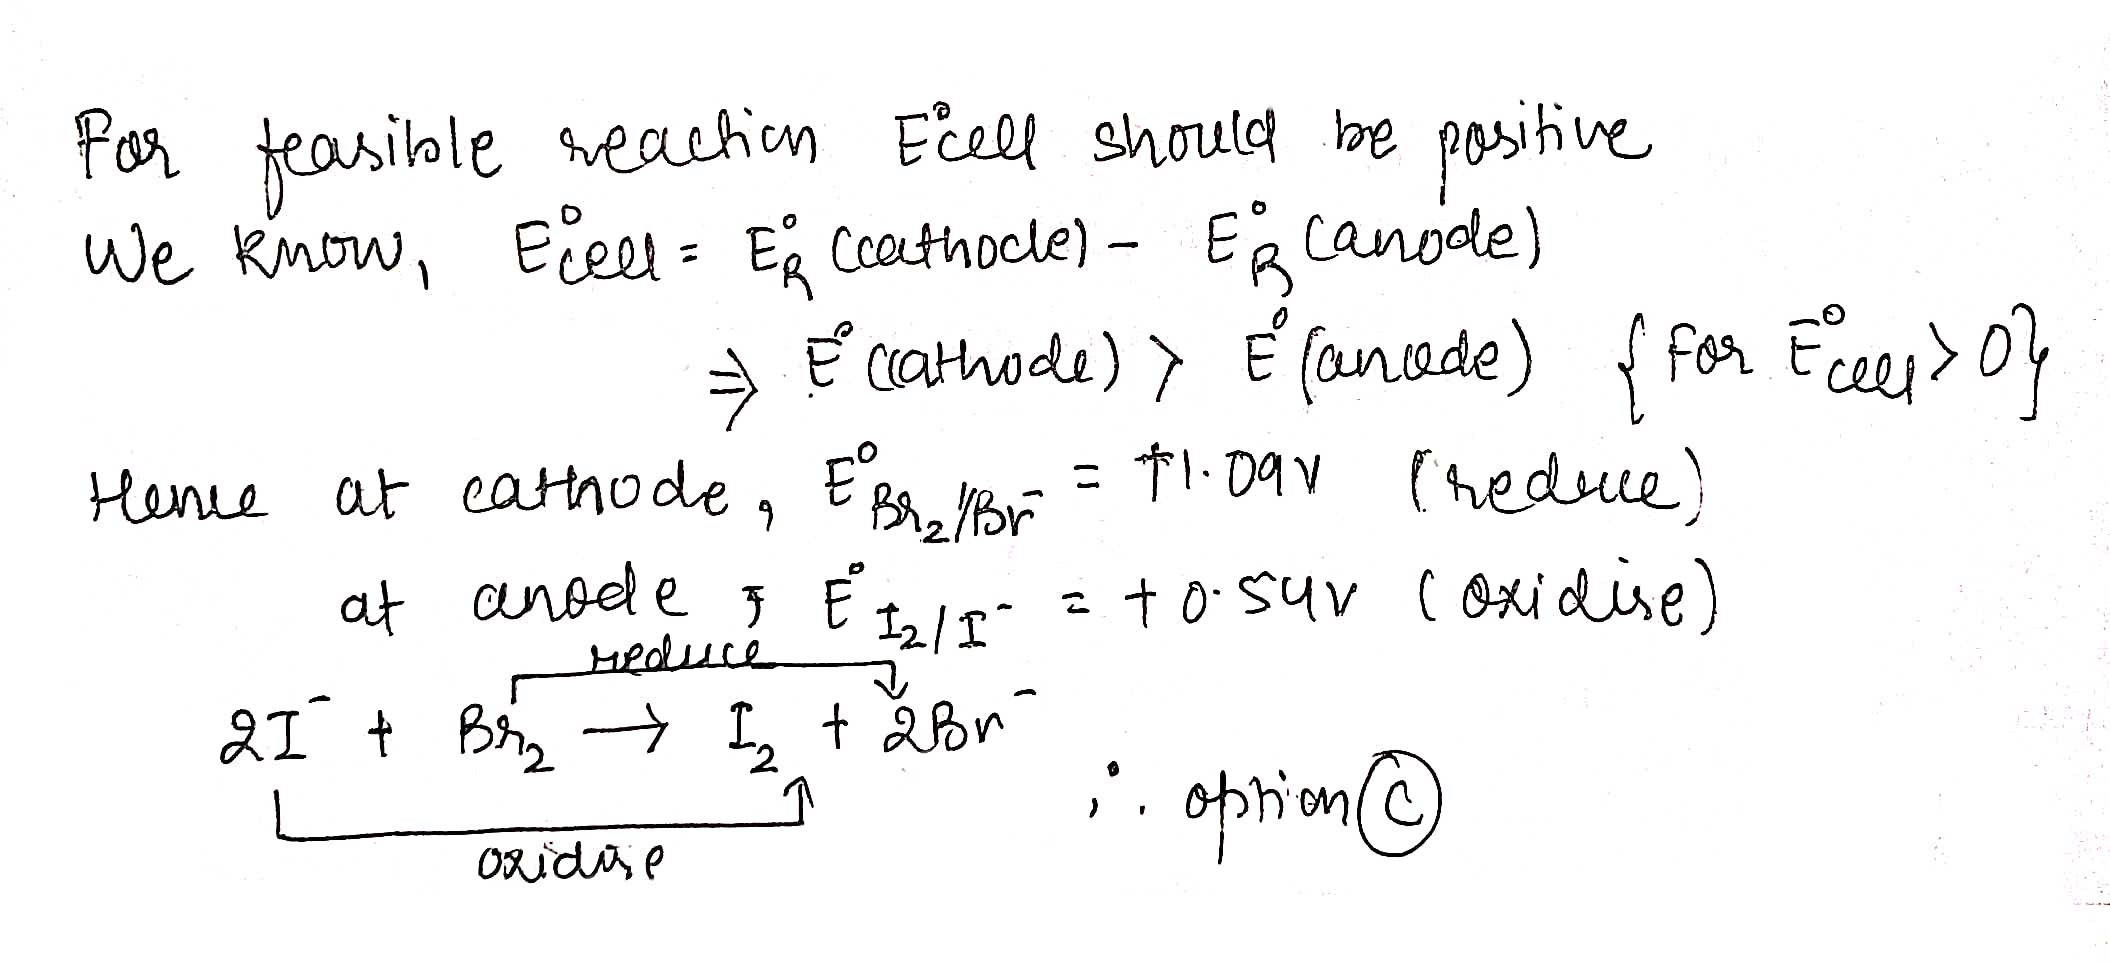 For feasible reaction E°cell should be positive
We know, E°cell = E°R (cathode) - E°R (anode)
⇒ E° (cathode) > E° (anode) { For E°cell > 0}
Hence at cathode, E° Br₂/Br⁻ = +1.09V (reduce)
at anode, E° I₂/I⁻ = +0.54V (oxidise)
reduce
2I⁻ + Br₂ → I₂ + 2Br⁻
∴ option C
oxidise